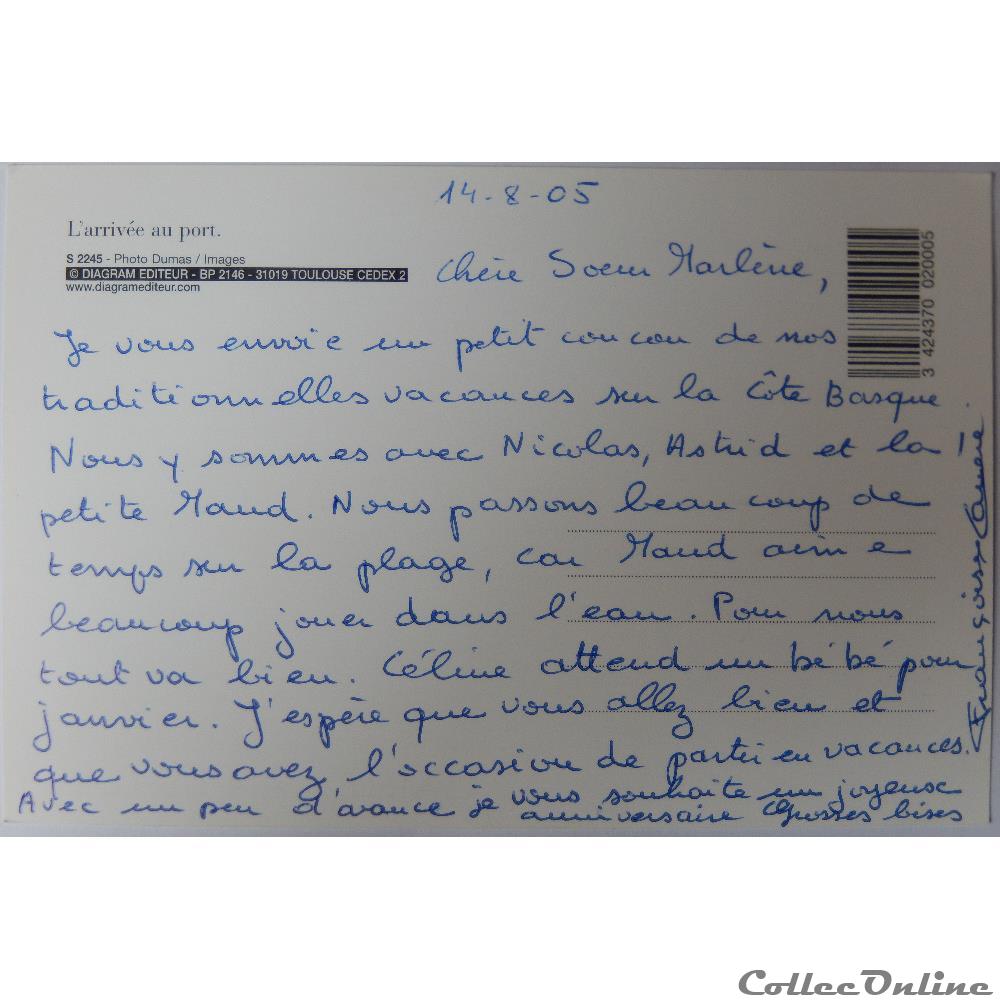 14-8-05
L'arrivée au port.
S 2245 - Photo Dumas / Images
© DIAGRAM EDITEUR - BP 2146 - 31019 TOULOUSE CEDEX 2
www.diagramediteur.com
3 424370 020005
Chère Soeur Marlène,
Je vous envoie un petit coucou de nos
traditionnelles vacances sur la Côte Basque.
Nous y sommes avec Nicolas, Astrid et la
petite Maud. Nous passons beaucoup de
temps sur la plage, car Maud aime
beaucoup jouer dans l'eau. Pour nous
tout va bien. Céline attend un bébé pour
janvier. J'espère que vous allez bien et
que vous avez l'occasion de partir en vacances.
Avec un peu d'avance je vous souhaite un joyeux
anniversaire Grosses bises
Françoise
CollecOnline